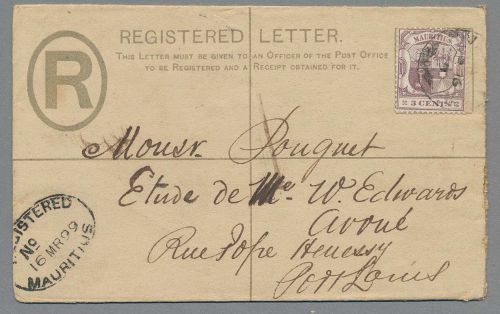 REGISTERED LETTER.
THIS LETTER MUST BE GIVEN TO AN OFFICER OF THE POST OFFICE
TO BE REGISTERED AND A RECEIPT OBTAINED FOR IT.
R
MAURITIUS
3 CENTS
Monsr. Pouguet
Etude de Me. W. Edwards
Avoué
Rue Pope Henessy
Port Louis
REGISTERED
No
16 MR 99
MAURITIUS